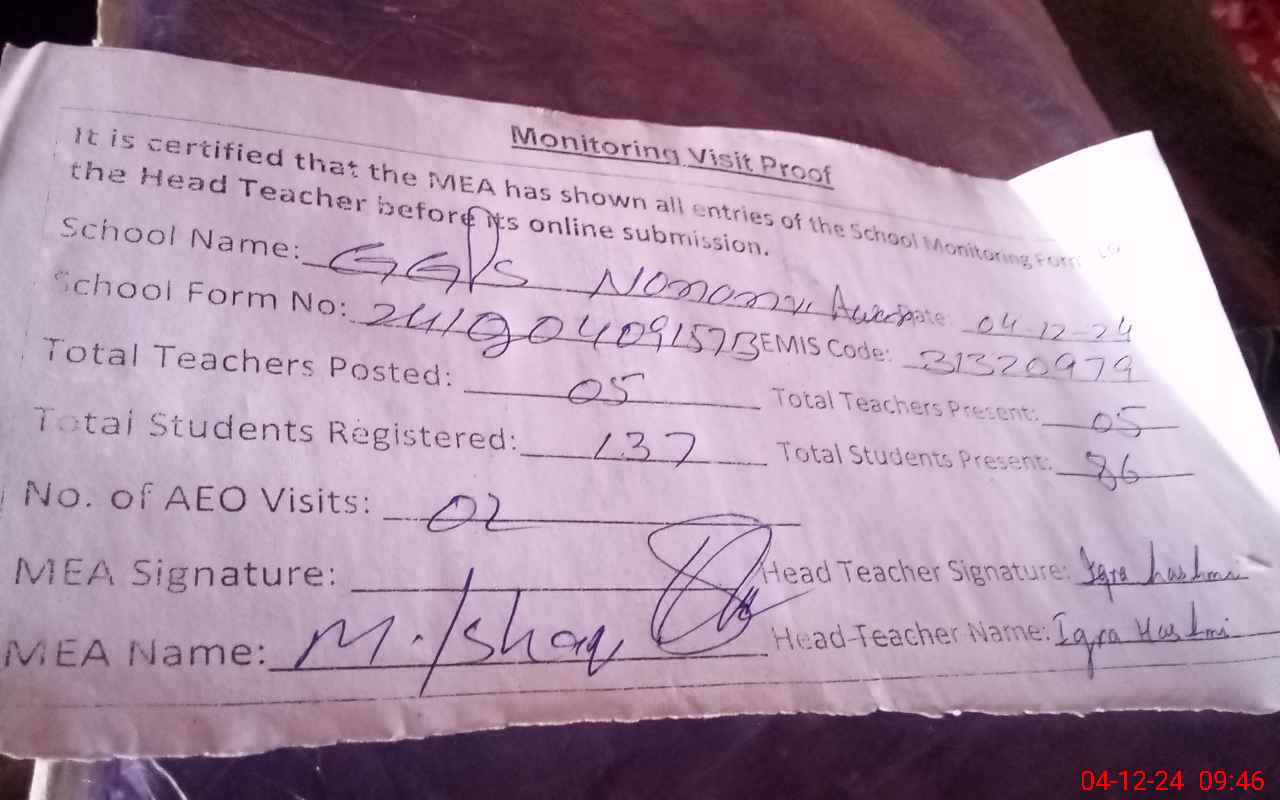 Monitoring Visit Proof
It is certified that the MEA has shown all entries of the School Monitoring Form to
the Head Teacher before its online submission.
School Name: GGPS Date: 04-12-24
School Form No: EMIS Code: 31320979
Total Teachers Posted: 05 Total Teachers Present: 05
Total Students Registered: 137 Total Students Present: 86
No. of AEO Visits: 02
MEA Signature: Head Teacher Signature: Iqra hashmi
MEA Name: M. Ishaq Head-Teacher Name: Iqra Hashmi
04-12-24 09:46